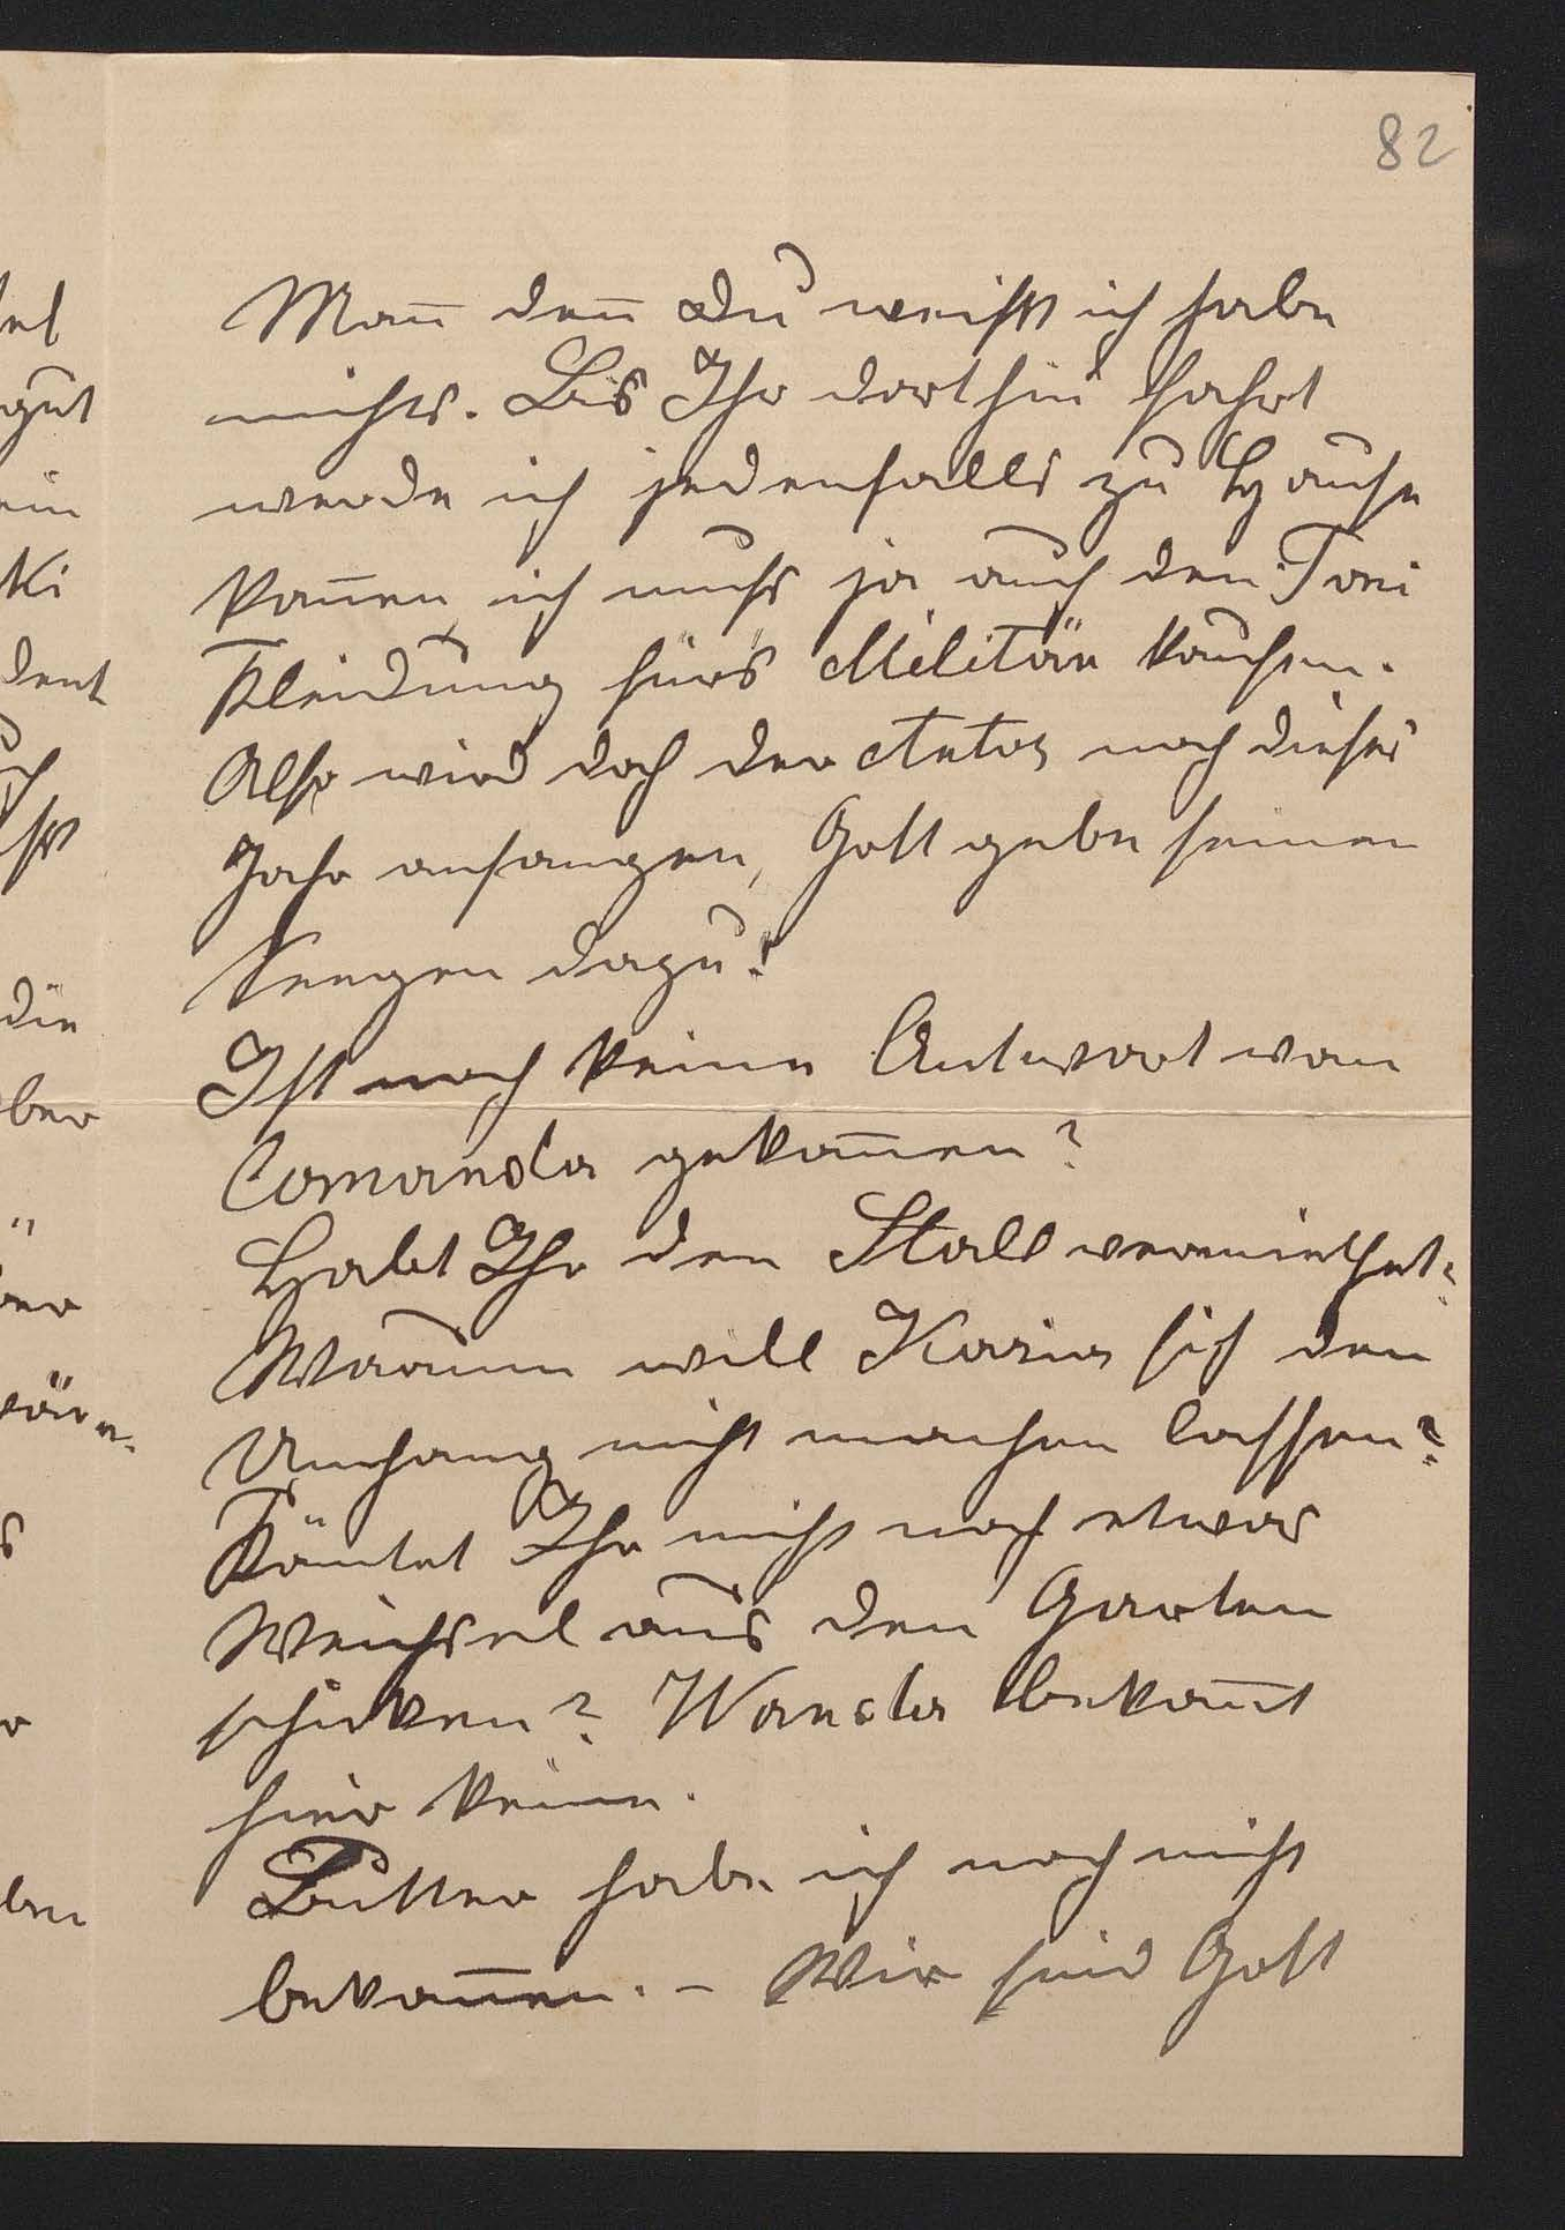 82
Man̄ den̄ Du weißt ich habe
nichts. Bis Ihr dorthin fahrt
werde ich jedenfalls zu Hause
kom̄en ich muß ja auch den Toni
Kleidung fürs Militär kaufen.
Also wird doch der noch dieses
Jahr anfangen, Gott gebe seinen
Seegen dazu!
Ist noch keine Antwort von
Comanda gekom̄en?
Habt Ihr den Stall vermiethet?
Warum will Kasia sich den
Umhang nicht machen lassen?
Köntet Ihr nicht noch etwas
Weichsel aus den Garten
schicken? Wanda bekom̄t
hier keine.
Butter habe ich noch nicht
bekom̄en. – Wir sind Gott